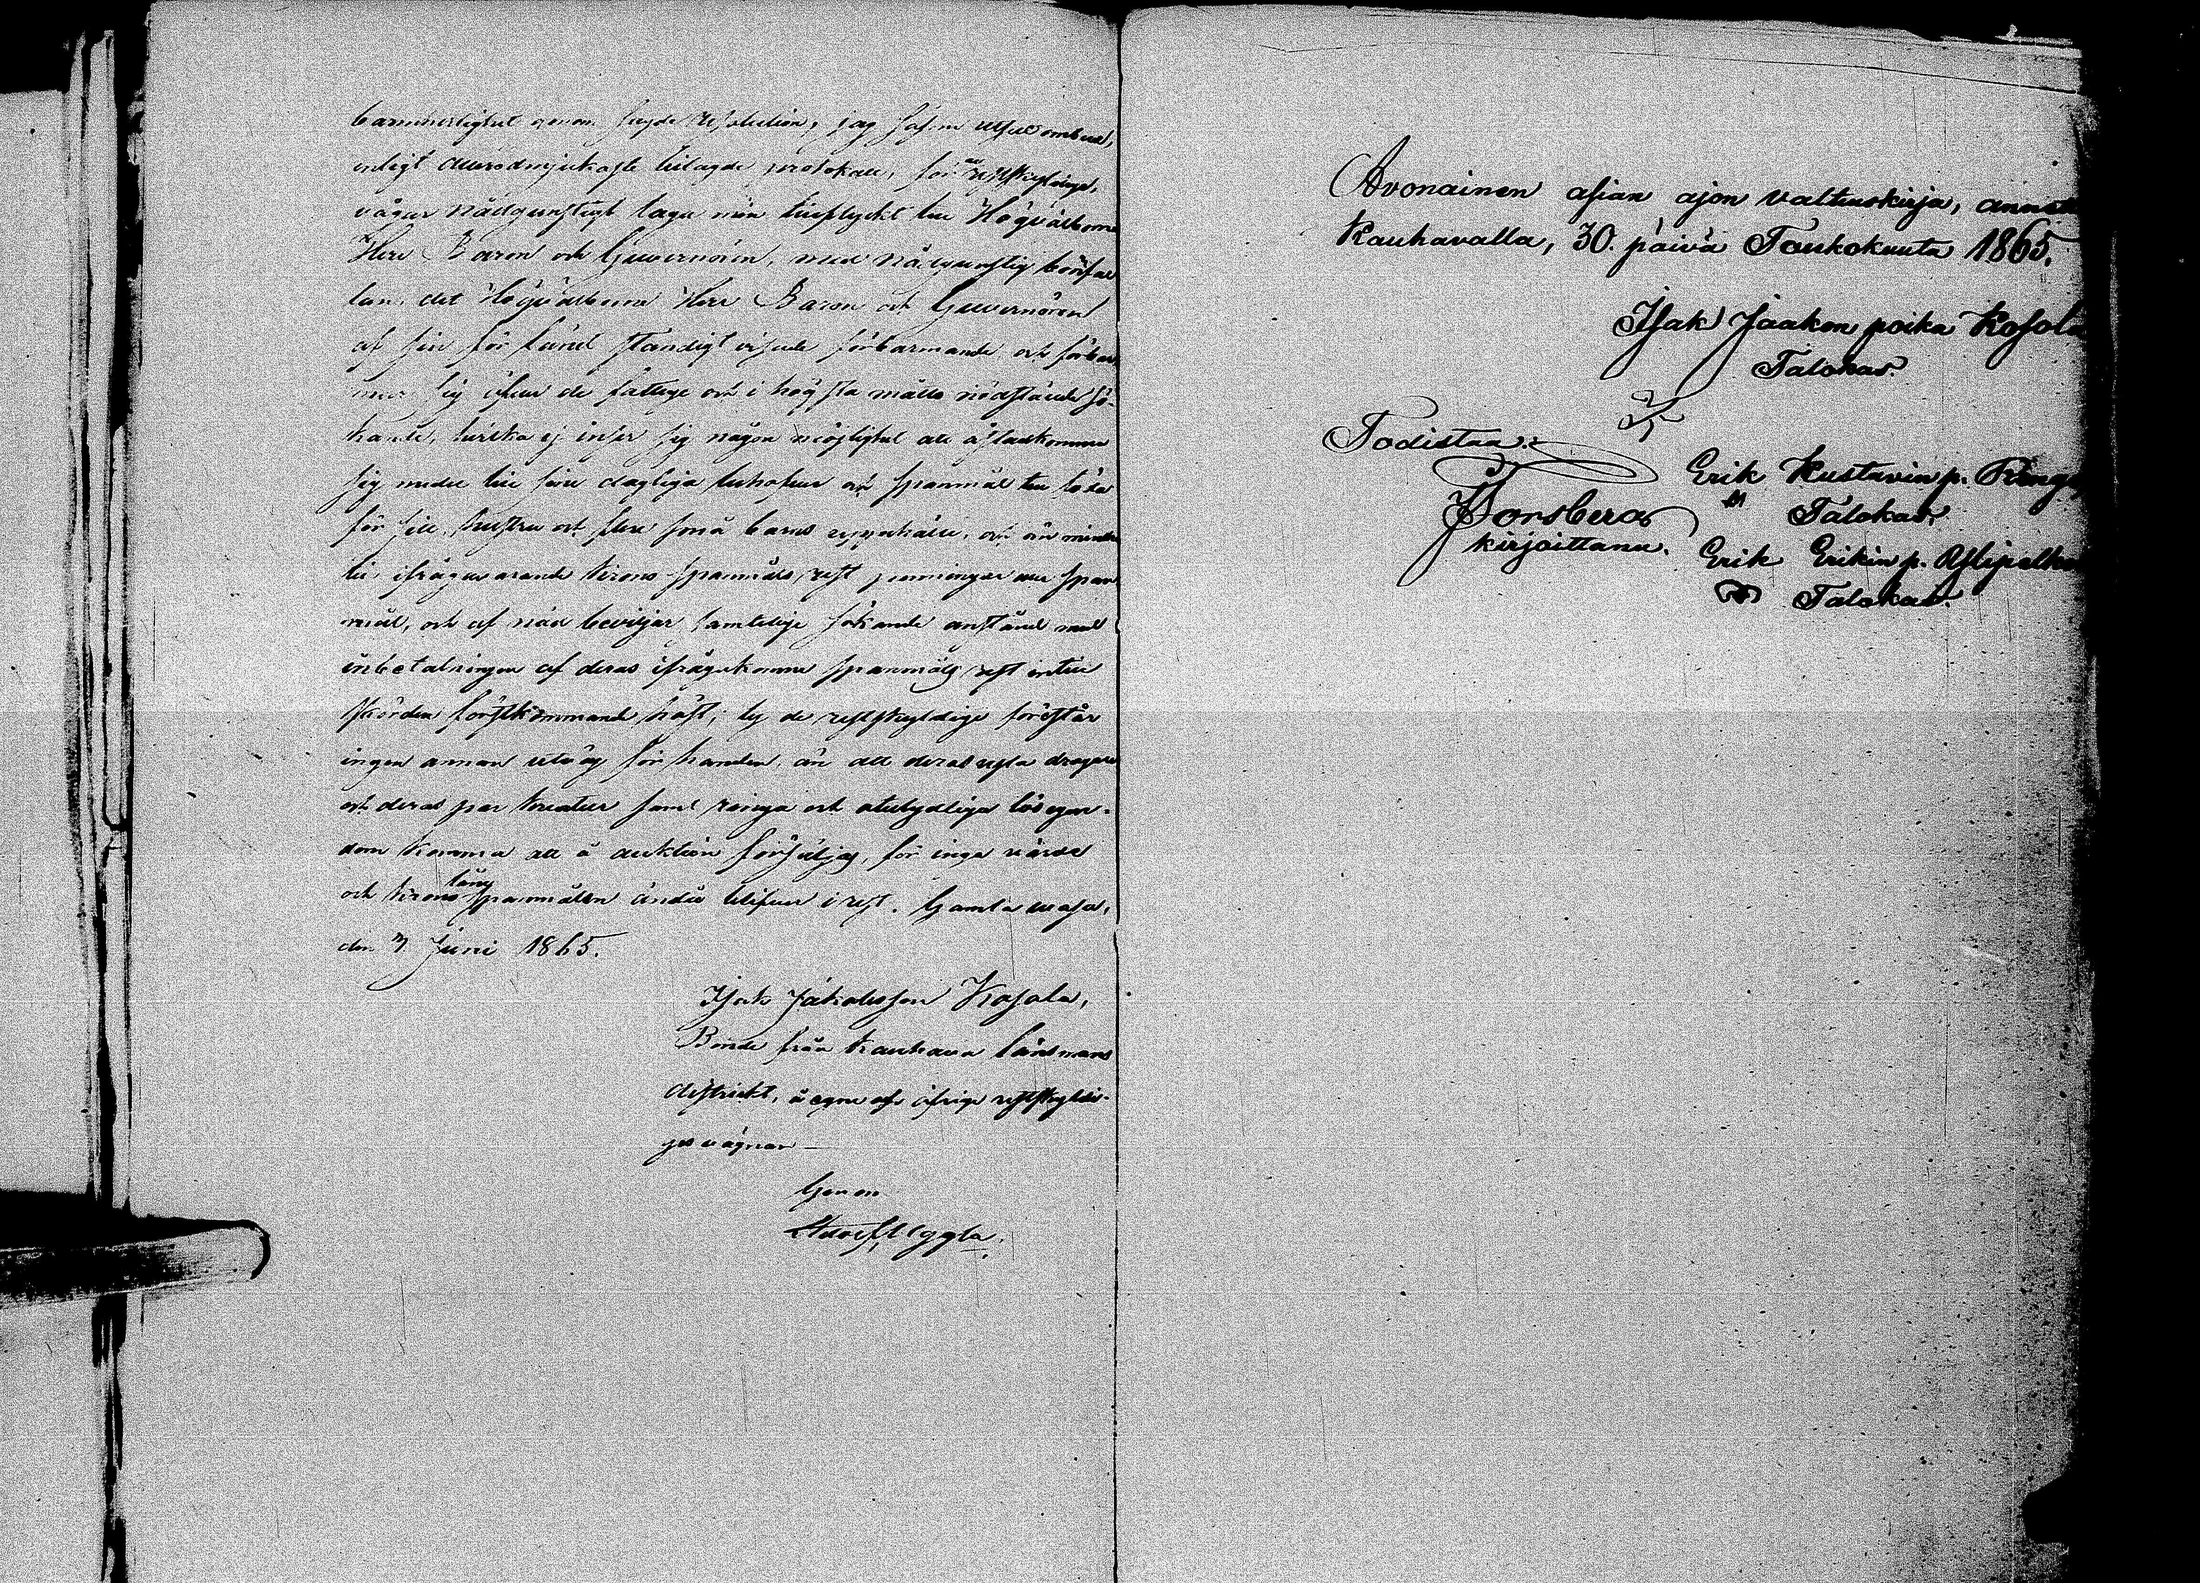 barmhertighet genom höga resolution, jag såsom utsedd ombud,
enligt allerödmjukaste bilagde protokoll, för restskyldige,
vågar nådgunstigt taga min tillflykt till Högvälborne
Herr Baron och Guvernören, med nådgunstig bönfal
lan, det Högvälborne Herr Baron och Guvernören
af sin för länet ständigt visade förbarmande och förbar
mar sig öfver de fattige och i högsta måtto nödstälde sö-
kande, hvilka ej inser sig någon möjlighet att åstadkomma
sig medel till sine dagliga behofver och spanmål till föda
för sill, hustru och flere små barns uppehälle, och än mindre
till ifrågavarande krono spanmåls rest penningar eller span
mål, och af nåd beviljar samtelige sökande anstånd med
inbetalningen af deras ifrågakomne spanmåls rest intill
skörden förstkommande höst; ty de restskyldige förestår
ingen annan utväg för handen än att deras usla dragare
och deras par kreatur samt ringa och obetydliga lösegen-
dom komma att å auktion försäljas, för inga värde
och krono låne spanmålen ändå blifver i rest. Gamla Wasa,
den 7 Juni 1865.
Isak Jakobsson Kosola,
Bonde från Kauhava länsmans
distrikt, å egne och öfrige restskyldi-
ges vägnar
Genom
Avonainen asian ajon valtuuskirja, annettu
Kauhavalla, 30. päivä Toukokuuta 1865.
Isak Jaakon poika Kosola
Talokas.
Todistaa:
Erik Kustavin p.
Talokas,
Forsberg
kirjoittanu.
Erik Erikin p.
Talokas.